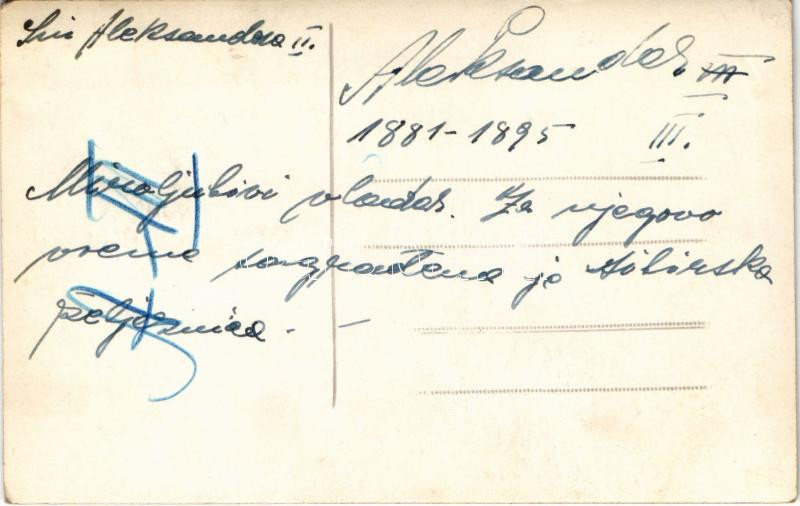 Sin Aleksandra II.
Aleksandar III
1881-1895 III.
Miroljubivi vladar. Za njegovo
vreme sagrađena je sibirska
željeznica. -